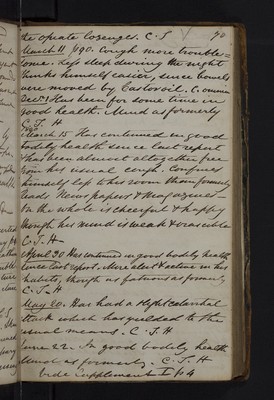 70
the opiate lozenges. C. J
March 11 /90. Cough more trouble=
some. Less sleep during the night
thinks himself easier, since bowels
were moved by Castor oil. C. omnia
Dec 1. Has been for some time in
good health. Mind as formerly
C. J. H
March 15 Has continued in good
bodily health since last report
Has been almost altogether free
from his usual cough. Confines
himself less to his room than formerly
reads Newspapers & Magazines -
On the whole is cheerful & happy
though his mind is weak & irascible
C. J. H
April 30 Has continued in good bodily health
since last report. More alert & active in his
habits, though as fatuous as formerly
C. J. H
May 20. Has had a slight catarrhal
attack which has yielded to the
usual means. C. J. H
June 22. In good bodily health
Mind as formerly. C. J. H
Vide Supplement I p 4